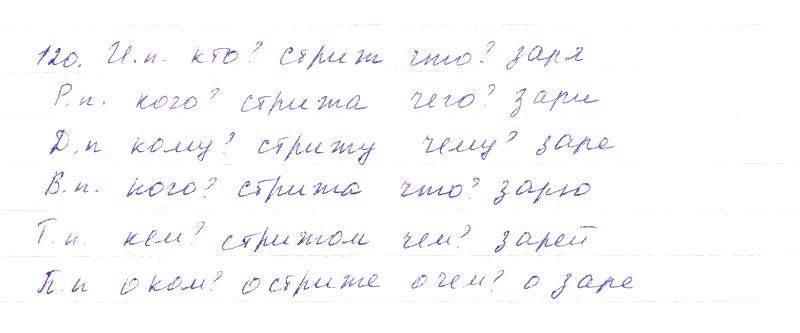 120. И.п. кто? стриж что? заря
Р.п. кого? стрижа чего? зари
Д.п. кому? стрижу чему? заре
В.п. кого? стрижа что? зарю
Т.п. кем? стрижом чем? зарей
П.п о ком? о стриже о чем? о заре